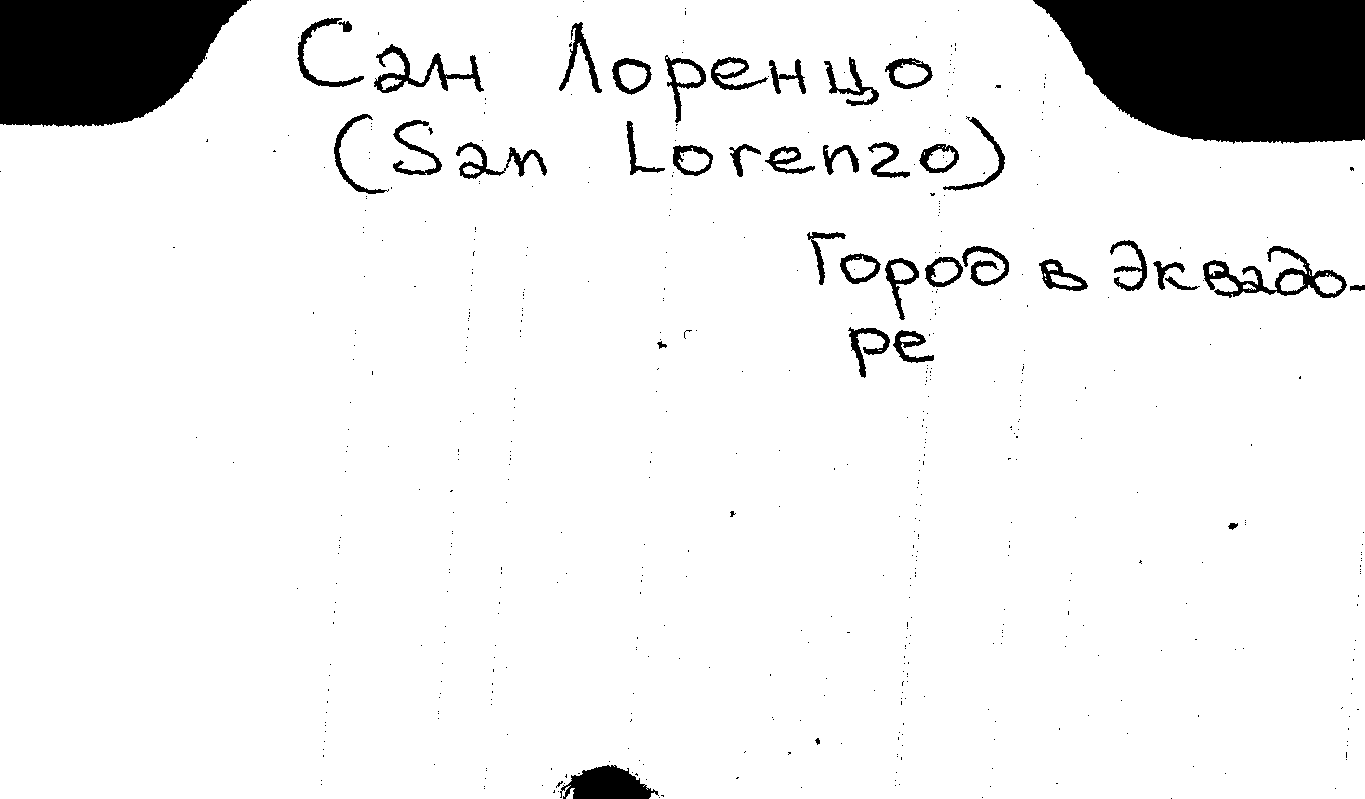 Сан Лоренцо
(San Lorenzo)
Город в Эквадо-
ре